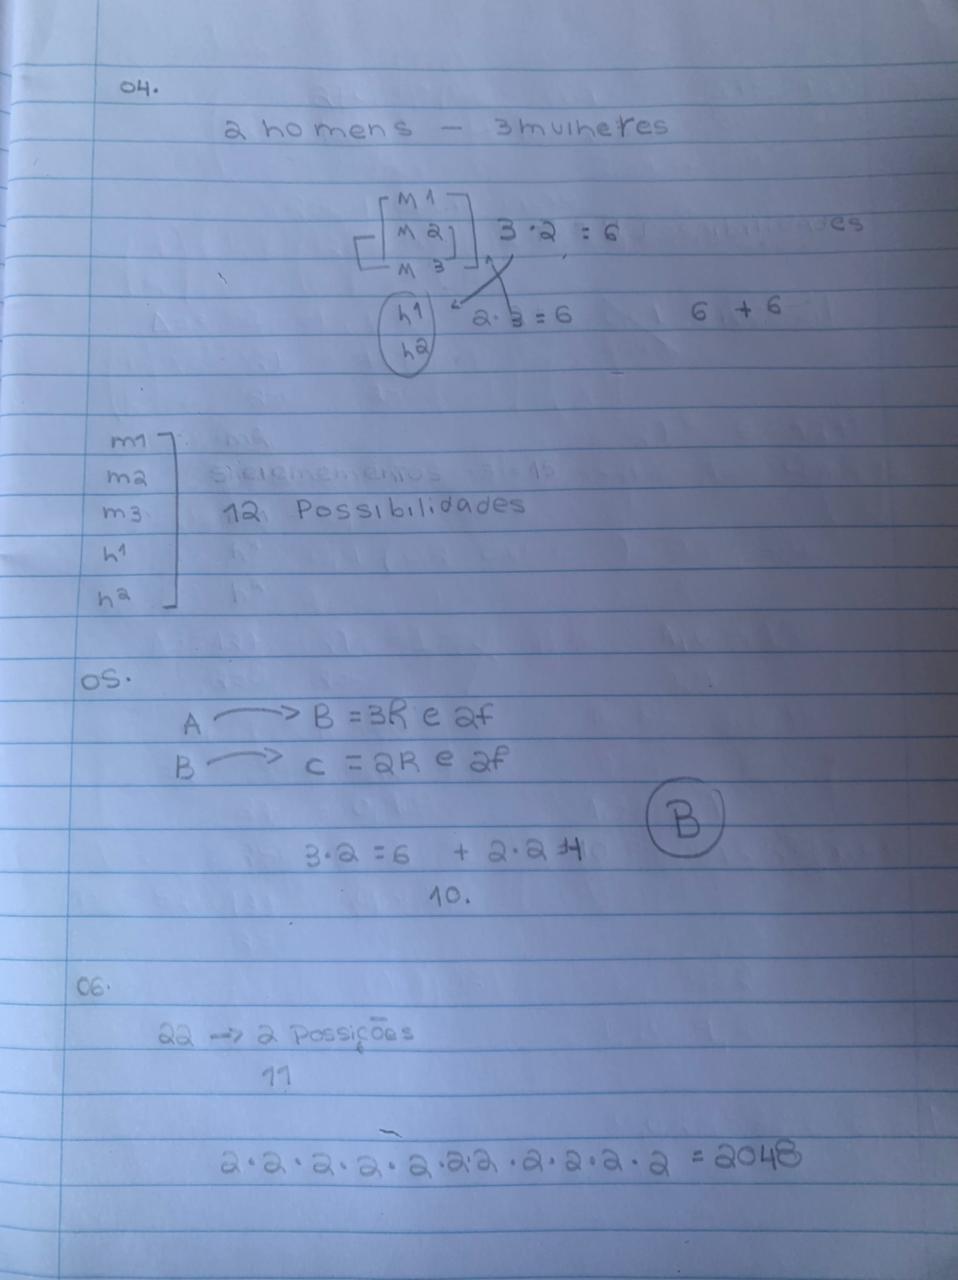 04.
2 homens - 3 mulheres
M 1
M 2 3 · 2 = 6 es
M 3
h1 2 · 3 = 6 6 + 6
h2
m1
m2
m3 12 Possibilidades
h1
h2
05.
A → B = 3R e 2f
B → C = 2R e 2f
B
3·2 = 6 + 2·2 = 4
10.
06.
22 → 2 Possições
11
2·2·2·2·2·2·2·2·2·2·2 = 2048